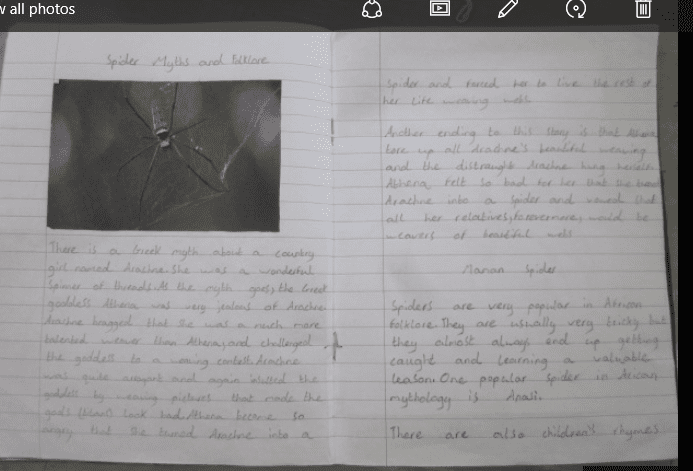 w all photos
Spider Myths and Folklore
There is a Greek myth about a country
girl named Arachne. She was a wonderful
Spinner of threads. As the myth goes, the Greek
goddess Athena was very jealous of Arachne.
Arachne bragged that she was a much more
talented weaver than Athena, and challenged
the goddess to a weaving contest. Arachne
was quite arrogant and again insulted the
goddess by weaving pictures that made the
gods look bad. Athena became so
angry that she turned Arachne into a
Spider and forced her to live the rest of
her life weaving webs
Another ending to this story is that Athena
tore up all Arachne's beautiful weaving
and the distraught Arachne hung herself.
Athena felt so bad for her that she
Arachne into a Spider and vowed that
all her relatives, forevermore, would be
weavers of beautiful webs
Spider
Spiders are very popular in African
folklore. They are usually very tricky but
they almost always end up getting
caught and learning a valuable
lesson. One popular spider in African
mythology is Anasi.
There are also children's rhymes